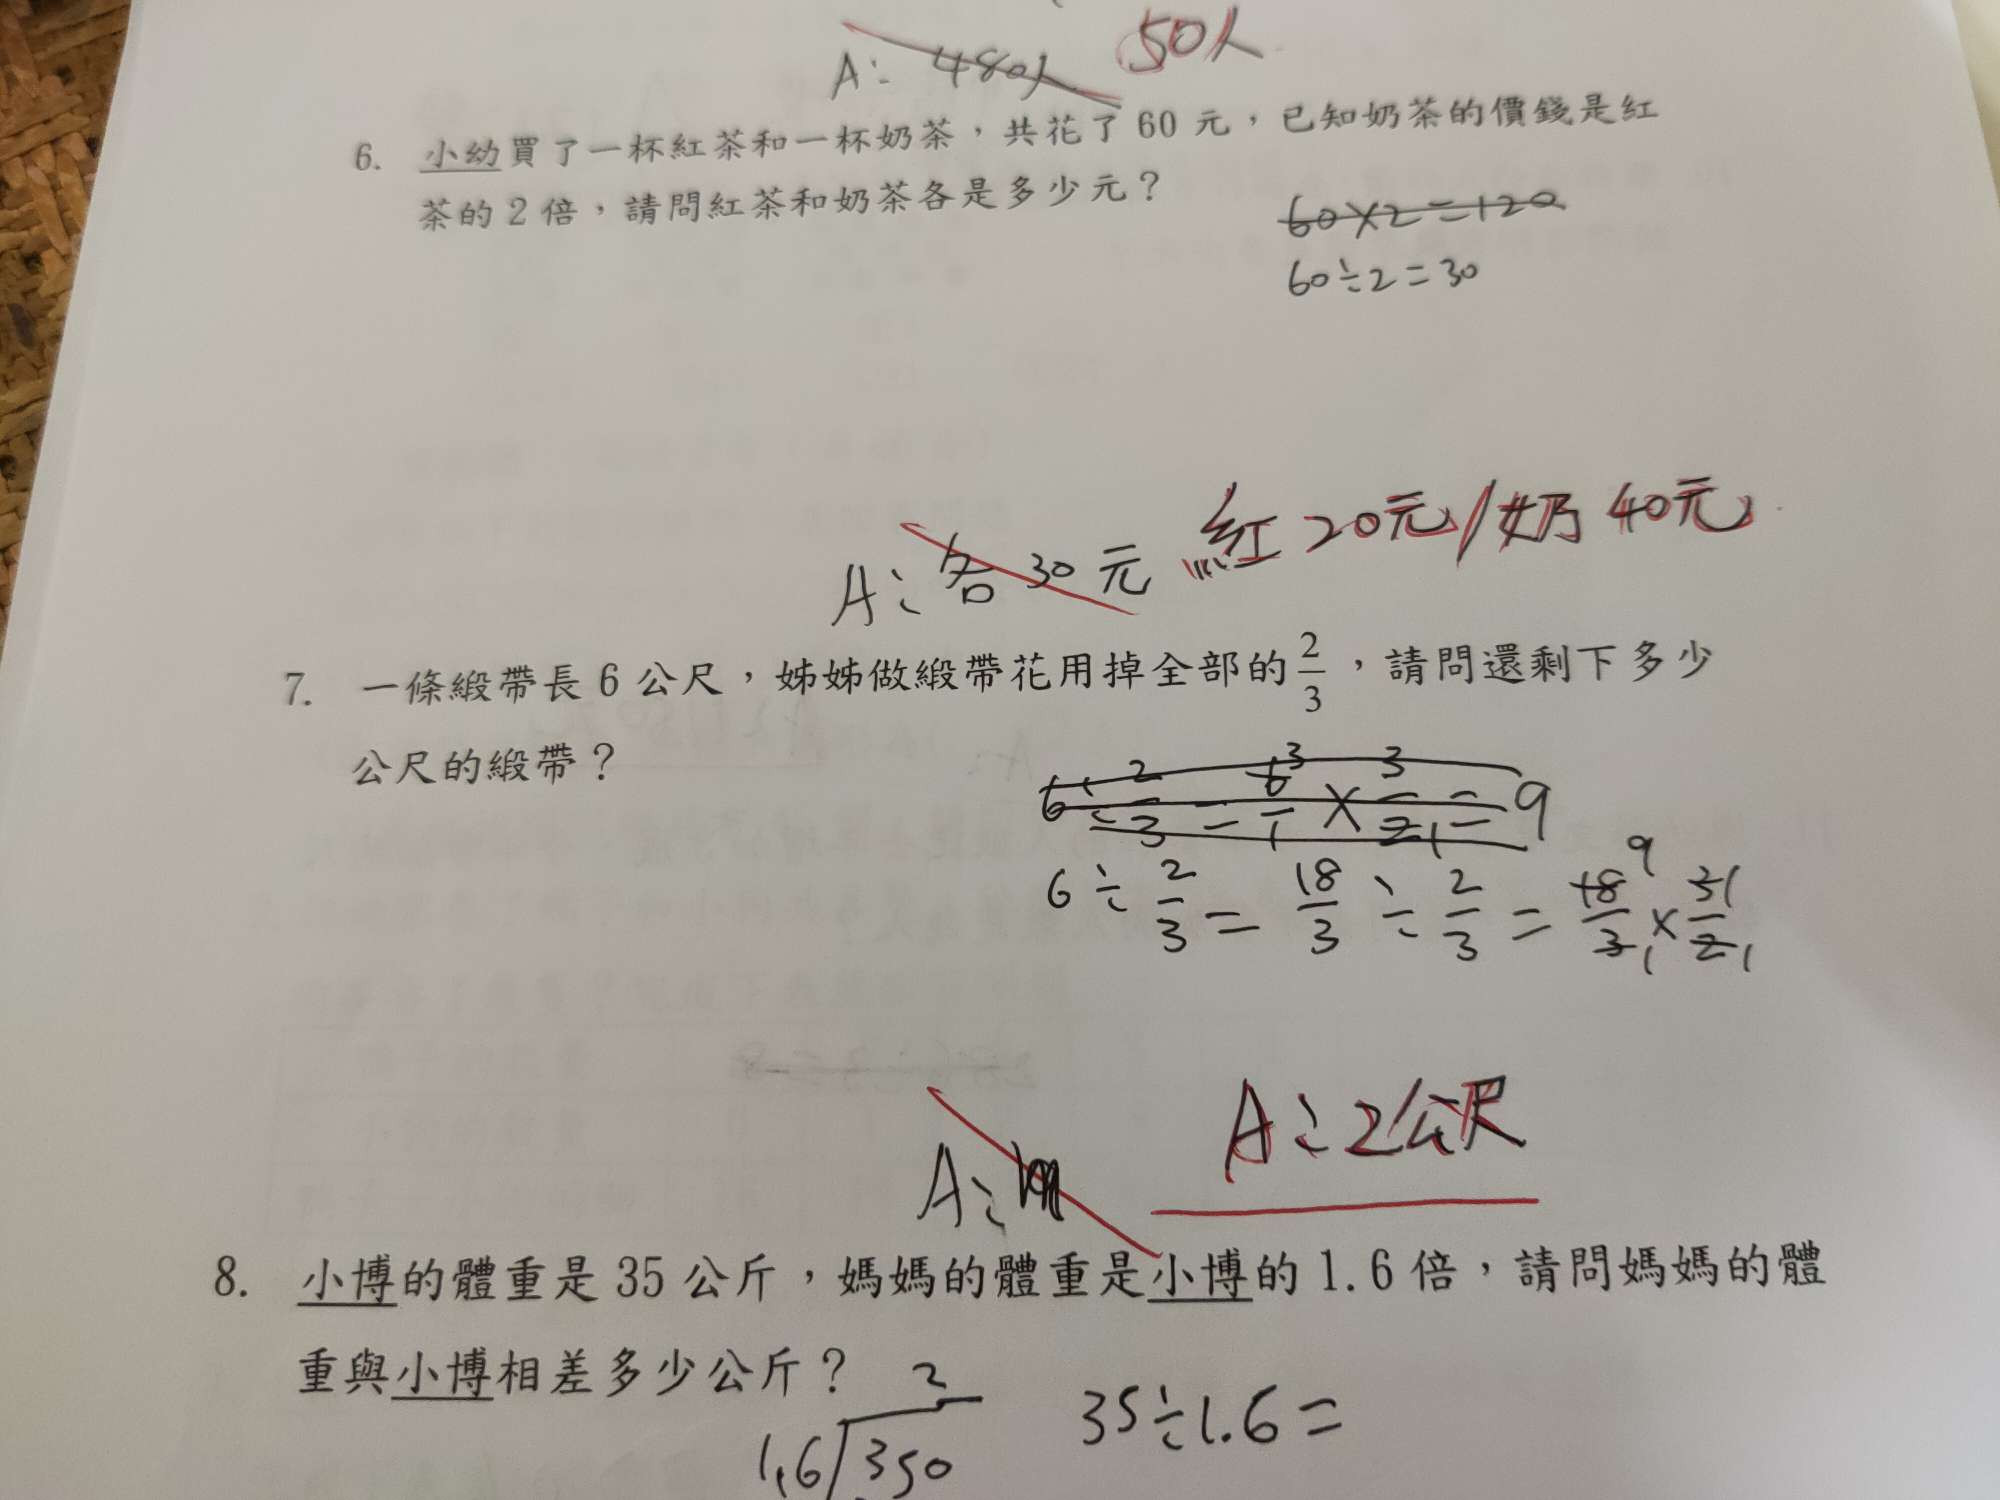 A: 480人 50人
6. 小幼買了一杯紅茶和一杯奶茶，共花了60元，已知奶茶的價錢是紅
茶的2倍，請問紅茶和奶茶各是多少元？
60×2=120
60÷2=30
A: 各30元 紅20元/奶40元
7. 一條緞帶長6公尺，姊姊做緞帶花用掉全部的2/3，請問還剩下多少
公尺的緞帶？
6÷2/3=6/1×3/2=9
6÷2/3=18/3÷2/3=18/3×3/2
A: A: 2公尺
8. 小博的體重是35公斤，媽媽的體重是小博的1.6倍，請問媽媽的體
重與小博相差多少公斤？
2
1.6 350 35÷1.6=